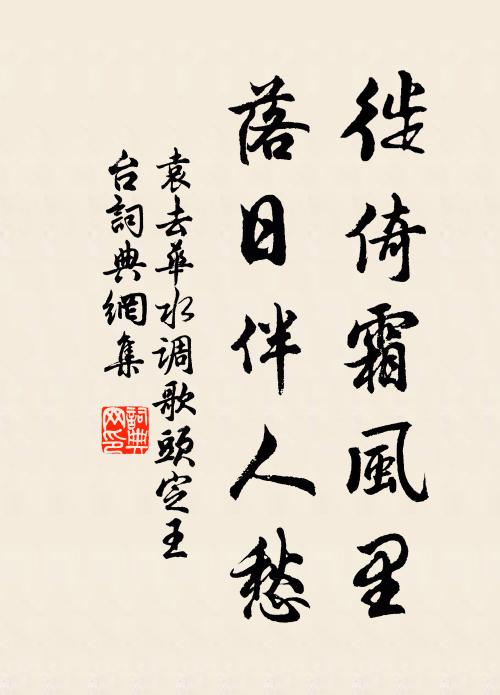 徙倚霜風里
落日伴人愁
袁去華水调歌頭定王
台詞典網集
詞典网印